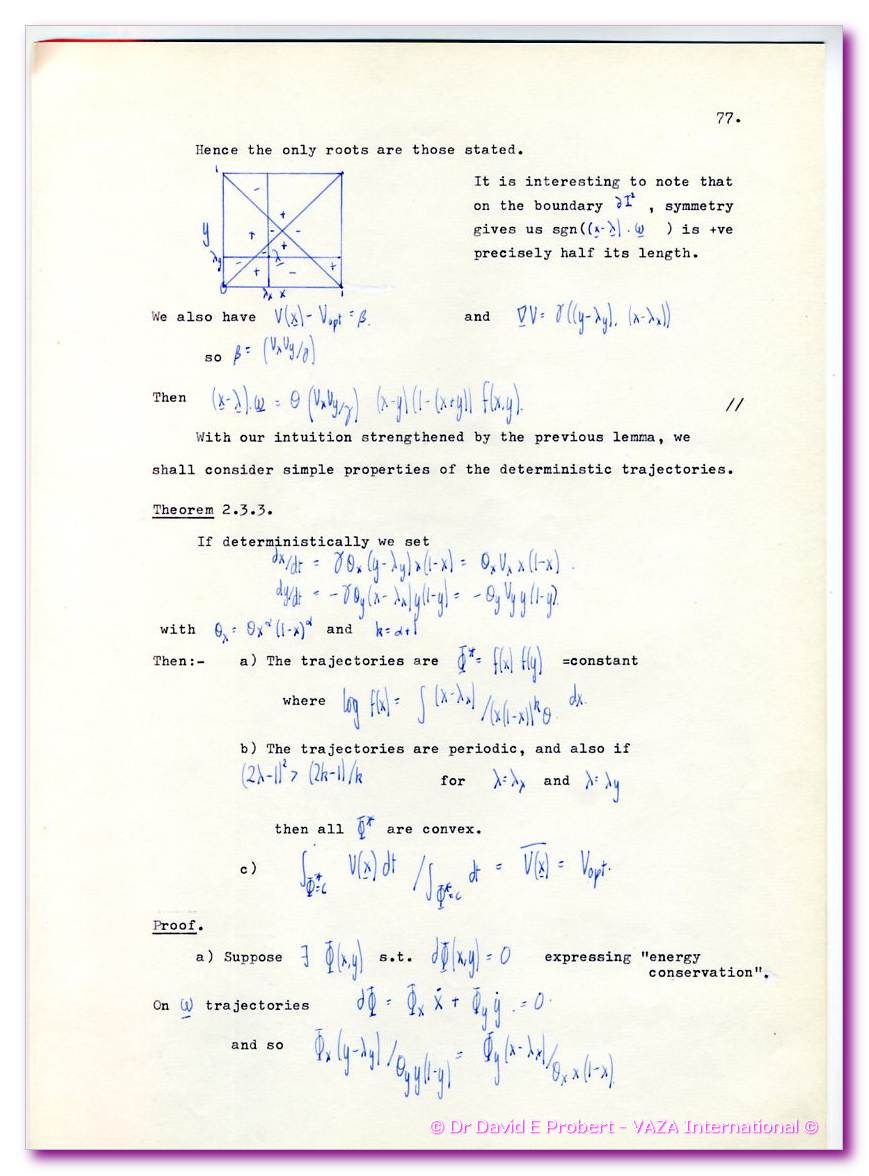 77.
Hence the only roots are those stated.
1
y
λy
0
λx x 1
+ - + - + - + -
λ
It is interesting to note that
on the boundary ∂I² , symmetry
gives us sgn((x-λ).ω ) is +ve
precisely half its length.
We also have V(x) - Vopt = β. and ∇V = γ((y-λy), (x-λx))
so β = (VxVy/γ)
Then (x-λ).ω = θ (VxVy/γ) (x-y)(1-(x+y)) f(x,y). //
With our intuition strengthened by the previous lemma, we
shall consider simple properties of the deterministic trajectories.
Theorem 2.3.3.
If deterministically we set
dx/dt = γθx(y-λy)x(1-x) = θxVx x(1-x) .
dy/dt = -γθy(x-λx)y(1-y) = -θyVy y(1-y).
with θx = θx^α(1-x)^α and k=α+1
Then:- a) The trajectories are Φ* = f(x) f(y) =constant
where log f(x) = ∫ (x-λx)/(x(1-x))^k θ dx.
b) The trajectories are periodic, and also if
(2λ-1)² > (2k-1)/k for λ=λx and λ=λy
then all Φ* are convex.
c) ∫Φ*=c V(x)dt / ∫Φ*=c dt = V̅(̅x̅)̅ = Vopt.
Proof.
a) Suppose ∃ Φ(x,y) s.t. dΦ(x,y) = 0 expressing "energy
conservation".
On ω trajectories dΦ = Φx ẋ + Φy ẏ = 0.
and so Φx (y-λy)/θy y(1-y) = Φy (x-λx)/θx x(1-x)
© Dr David E Probert - VAZA International ©